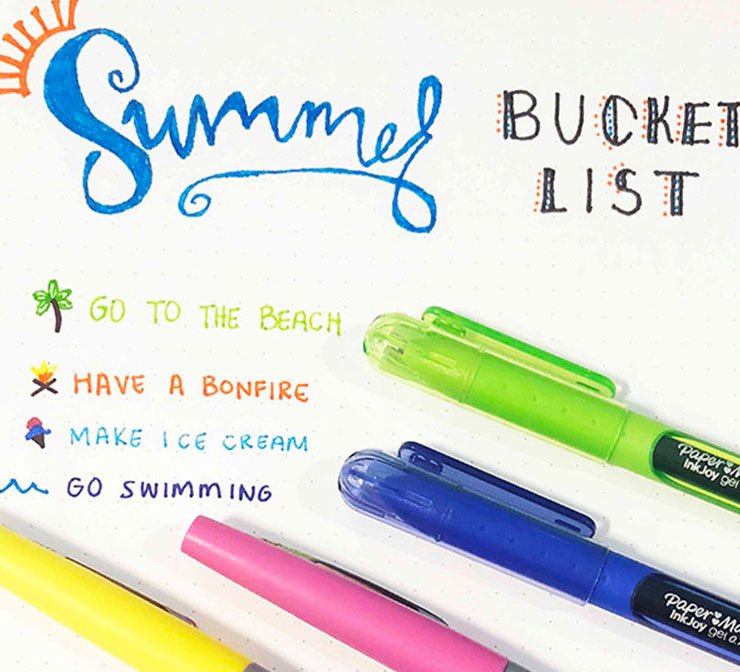 Summer
BUCKET
LIST
GO TO THE BEACH
HAVE A BONFIRE
MAKE ICE CREAM
GO SWIMMING
InkJoy gel
InkJoy gel